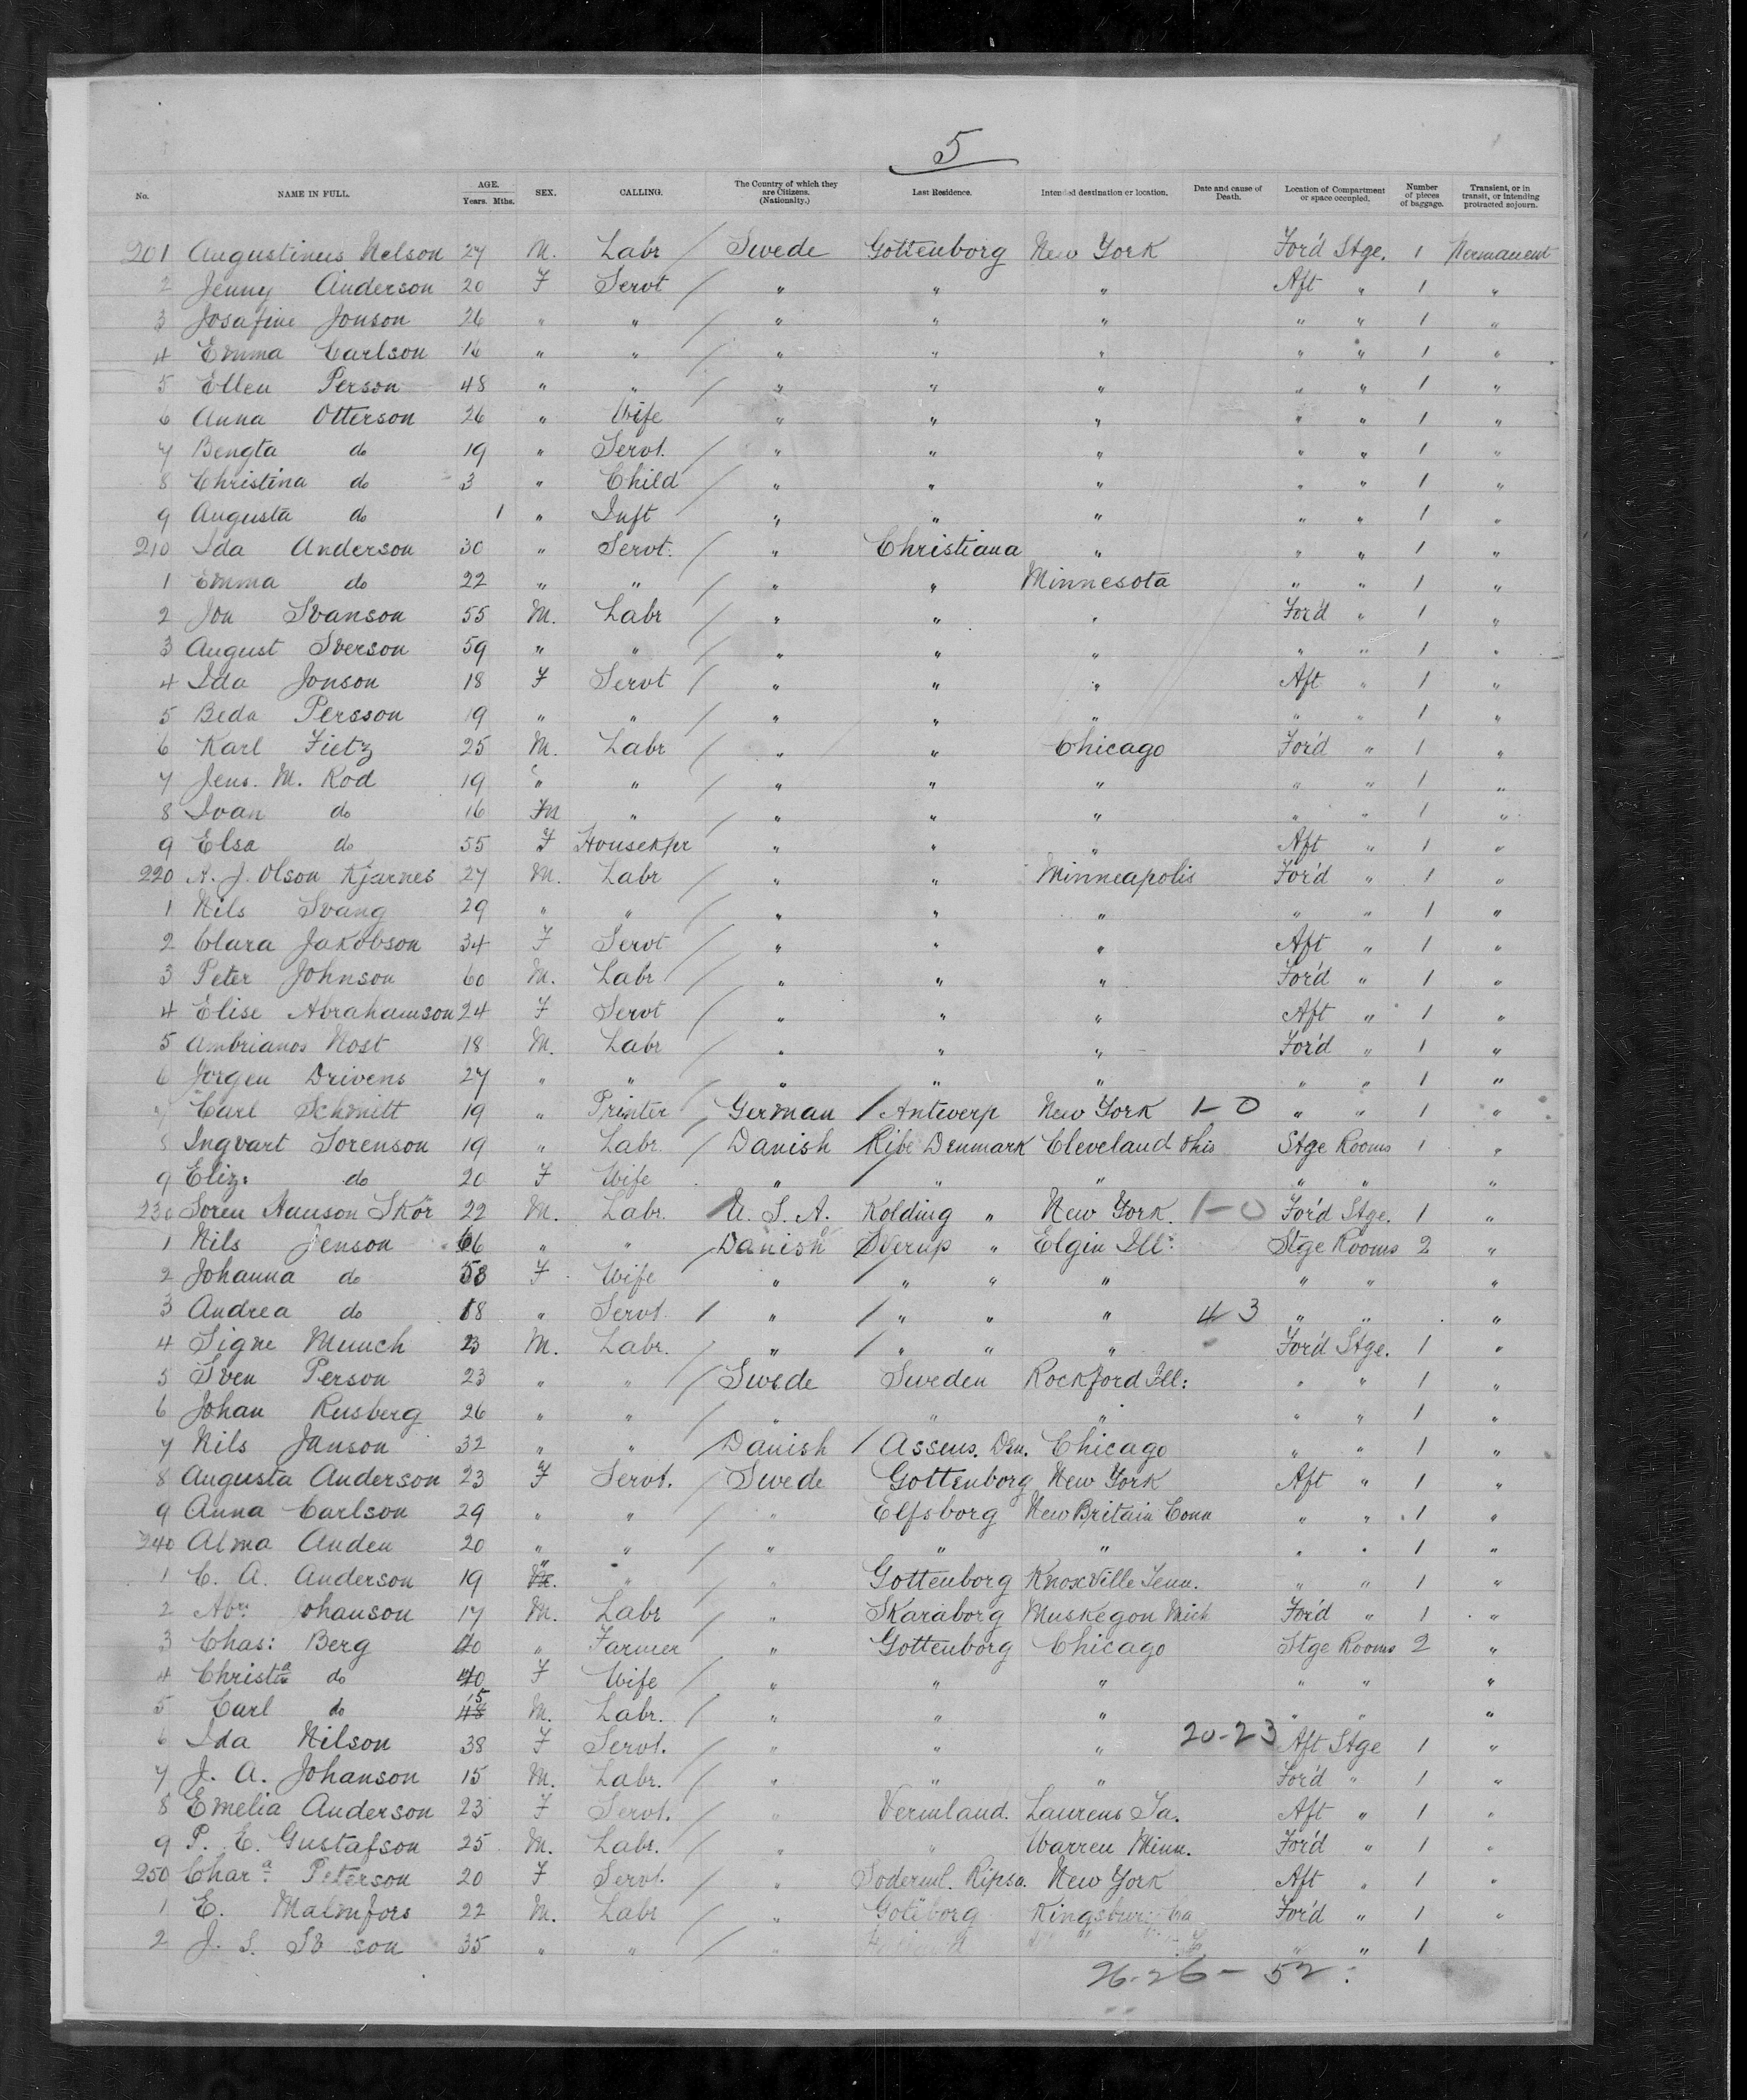 5
No. NAME IN FULL. AGE. Years. Mths. SEX. CALLING. The Country of which they are Citizens. (Nationality.) Last Residence. Intended destination or location. Date and cause of Death. Location of Compartment or space occupied. Number of pieces of baggage. Transient, or in transit, or intending protracted sojourn.
201 Augustinus Nelson 27 M. Labr / Swede Gottenborg New York For'd Stge. 1 Permanent
2 Jenny Anderson 20 F Servt / " " " Aft " 1 "
3 Josafine Jonson 26 " " / " " " " " 1 "
4 Emma Carlson 16 " " / " " " " " 1 "
5 Ellen Person 48 " " / " " " " " 1 "
6 Anna Otterson 26 " Wife " " " " " 1 "
7 Bengta do 19 " Servt. / " " " " " 1 "
8 Christina do 3 " Child / " " " " " 1 "
9 Augusta do 1 " Inft " " " " " 1 "
210 Ida Anderson 30 " Servt. / " Christiana " " " 1 "
1 Emma do 22 " " / " " Minnesota " " 1 "
2 Jon Svanson 55 M. Labr / " " " For'd " 1 "
3 August Sverson 59 " " / " " " " " 1 "
4 Ida Jonson 18 F Servt / " " " Aft " 1 "
5 Beda Persson 19 " " / " " " " " 1 "
6 Karl Fietz 25 M. Labr / " " Chicago For'd " 1 "
7 Jens. M. Rod 19 " " / " " " " " 1 "
8 Ivan do 16 M " / " " " " " 1 "
9 Elsa do 55 F Housekpr " " " Aft " 1 "
220 A. J. Olson Kjarnes 27 M. Labr / " " Minneapolis For'd " 1 "
1 Nils Svang 29 " " / " " " " " 1 "
2 Clara Jakobson 34 F Servt / " " " Aft " 1 "
3 Peter Johnson 60 M. Labr / " " " For'd " 1 "
4 Elise Abrahamson 24 F Servt / " " " Aft " 1 "
5 Ambrianos Nost 18 M. Labr / " " " For'd " 1 "
6 Jorgen Drivens 27 " " / " " " " " 1 "
7 Carl Schmitt 19 " Printer / German / Antwerp New York 1-0 " " 1 "
8 Ingvart Sorenson 19 " Labr. / Danish Ribe Denmark Cleveland Ohio Stge Rooms 1 "
9 Eliz: do 20 F Wife " / " " " " "
230 Soren Hanson Skör 22 M. Labr. / U. S. A. Kolding " New York. 1-0 For'd Stge. 1 "
1 Nils Jenson 66 " " / Danish " Elgin Ill: Stge Rooms 2 "
2 Johanna do 58 F Wife " / " " " " " "
3 Andrea do 18 " Servt. / " / " " " 4 3 " " "
4 Signe Munch 23 M. Labr. / " / " " " For'd Stge. 1 "
5 Sven Person 23 " " / Swede Sweden Rockford Ill: " " 1 "
6 Johan Rusberg 26 " " / " " " " " 1 "
7 Nils Janson 32 " " / Danish / Assens. Den. Chicago " " 1 "
8 Augusta Anderson 23 F Servt. / Swede Gottenborg New York Aft " 1 "
9 Anna Carlson 29 " " / " Elfsborg New Britain Conn " " 1 "
240 Alma Anden 20 " " / " " " " " 1 "
1 C. A. Anderson 19 " " / " Gottenborg Knoxville Tenn. " " 1 "
2 Abr. Johanson 17 M. Labr / " Skaraborg Muskegon Mich For'd " 1 "
3 Chas: Berg 40 " Farmer " Gottenborg Chicago Stge Rooms 2 "
4 Christa do 40 F Wife / " " " " " "
5 Carl do 15 M. Labr. / " " " " " "
6 Ida Nilson 38 F Servt. / " " " 20-23 Aft Stge 1 "
7 J. A. Johanson 15 M. Labr. / " " " For'd " 1 "
8 Emelia Anderson 23 F Servt. / " Vermland. Laurens Ia. Aft " 1 "
9 P. E. Gustafson 25 M. Labr. / " " Warren Minn. For'd " 1 "
250 Chara Peterson 20 F Servt. / " Soderml. Ripsa. New York Aft " 1 "
1 E. Malmfors 22 M. Labr / " Goteborg For'd " 1 "
2 J. S. 35 " " / " " " 1
26-26- 52